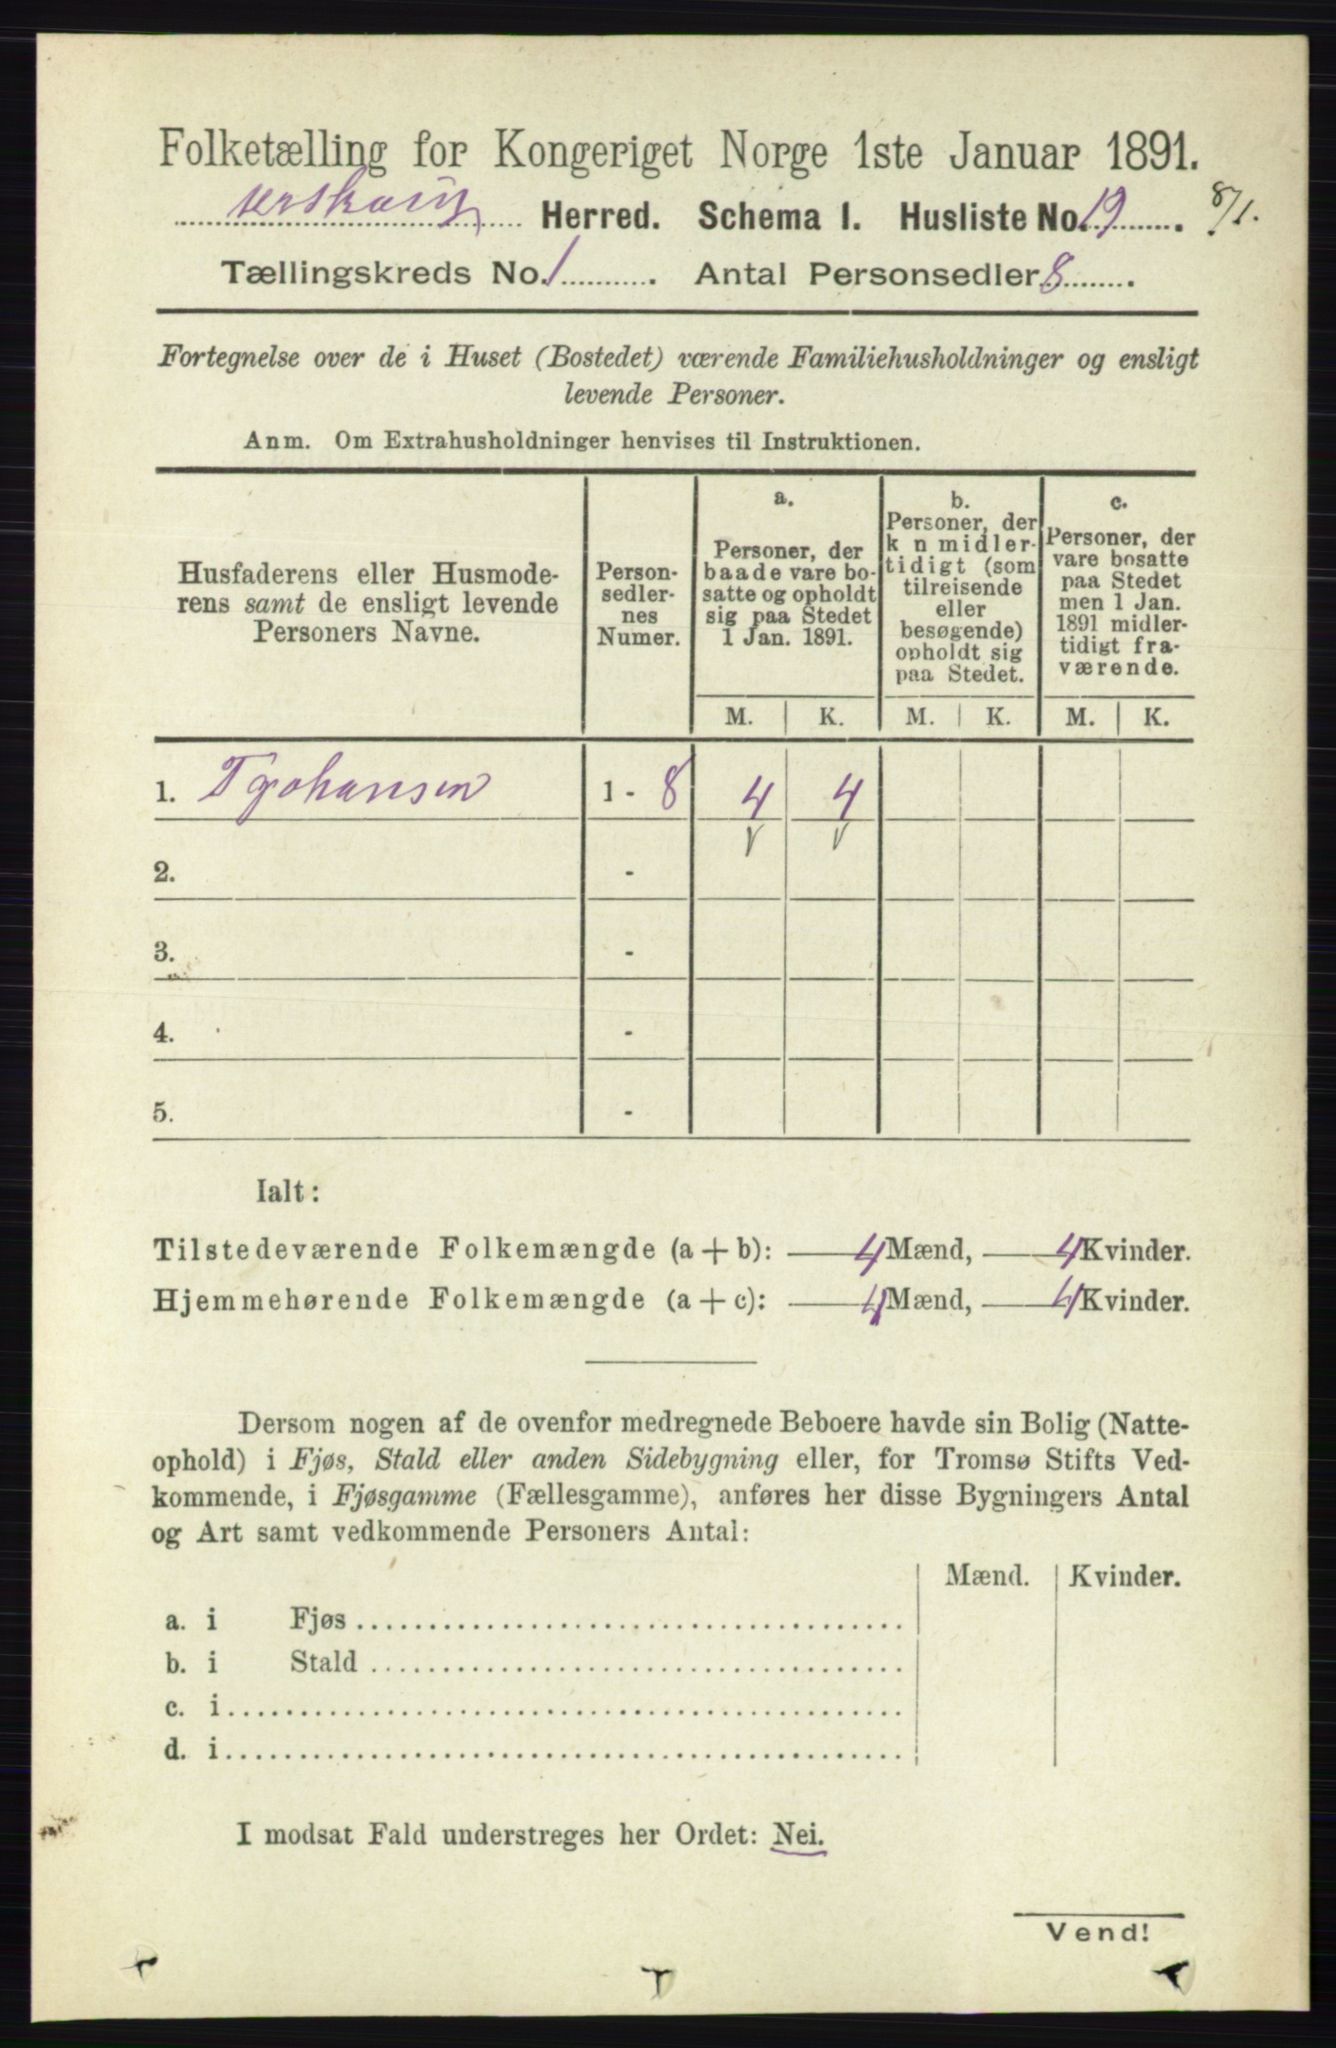 Folketælling for Kongeriget Norge 1ste Januar 1891.
Urskoug Herred. Schema 1. Husliste No. 19. 8/1.
Tællingskreds No. 1. Antal Personsedler 8.
Fortegnelse over de i Huset (Bostedet) værende Familiehusholdninger og ensligt
levende Personer.
Anm. Om Extrahusholdninger henvises til Instruktionen.
Husfaderens eller Husmode-
rens samt de ensligt levende
Personers Navne.
Person-
sedler-
nes
Numer.
a.
Personer, der
baade vare bo-
satte og opholdt
sig paa Stedet
1 Jan. 1891.
b.
Personer, der
k n midler-
tidigt (som
tilreisende
eller
besøgende)
opholdt sig
paa Stedet.
c.
Personer, der
vare bosatte
paa Stedet
men 1 Jan.
1891 midler-
tidigt fra-
værende.
M. K. M. K. M. K.
1. T Johansen 1 - 8 4 4
2. -
3. -
4. -
5. -
Ialt:
Tilstedeværende Folkemængde (a + b): 4 Mænd, 4 Kvinder.
Hjemmehørende Folkemængde (a + c): 4 Mænd, 4 Kvinder.
Dersom nogen af de ovenfor medregnede Beboere havde sin Bolig (Natte-
ophold) i Fjøs, Stald eller anden Sidebygning eller, for Tromsø Stifts Ved-
kommende, i Fjøsgamme (Fællesgamme), anføres her disse Bygningers Antal
og Art samt vedkommende Personers Antal:
Mænd. Kvinder.
a. i Fjøs
b. i Stald
c. i
d. i
I modsat Fald understreges her Ordet: Nei.
Vend!